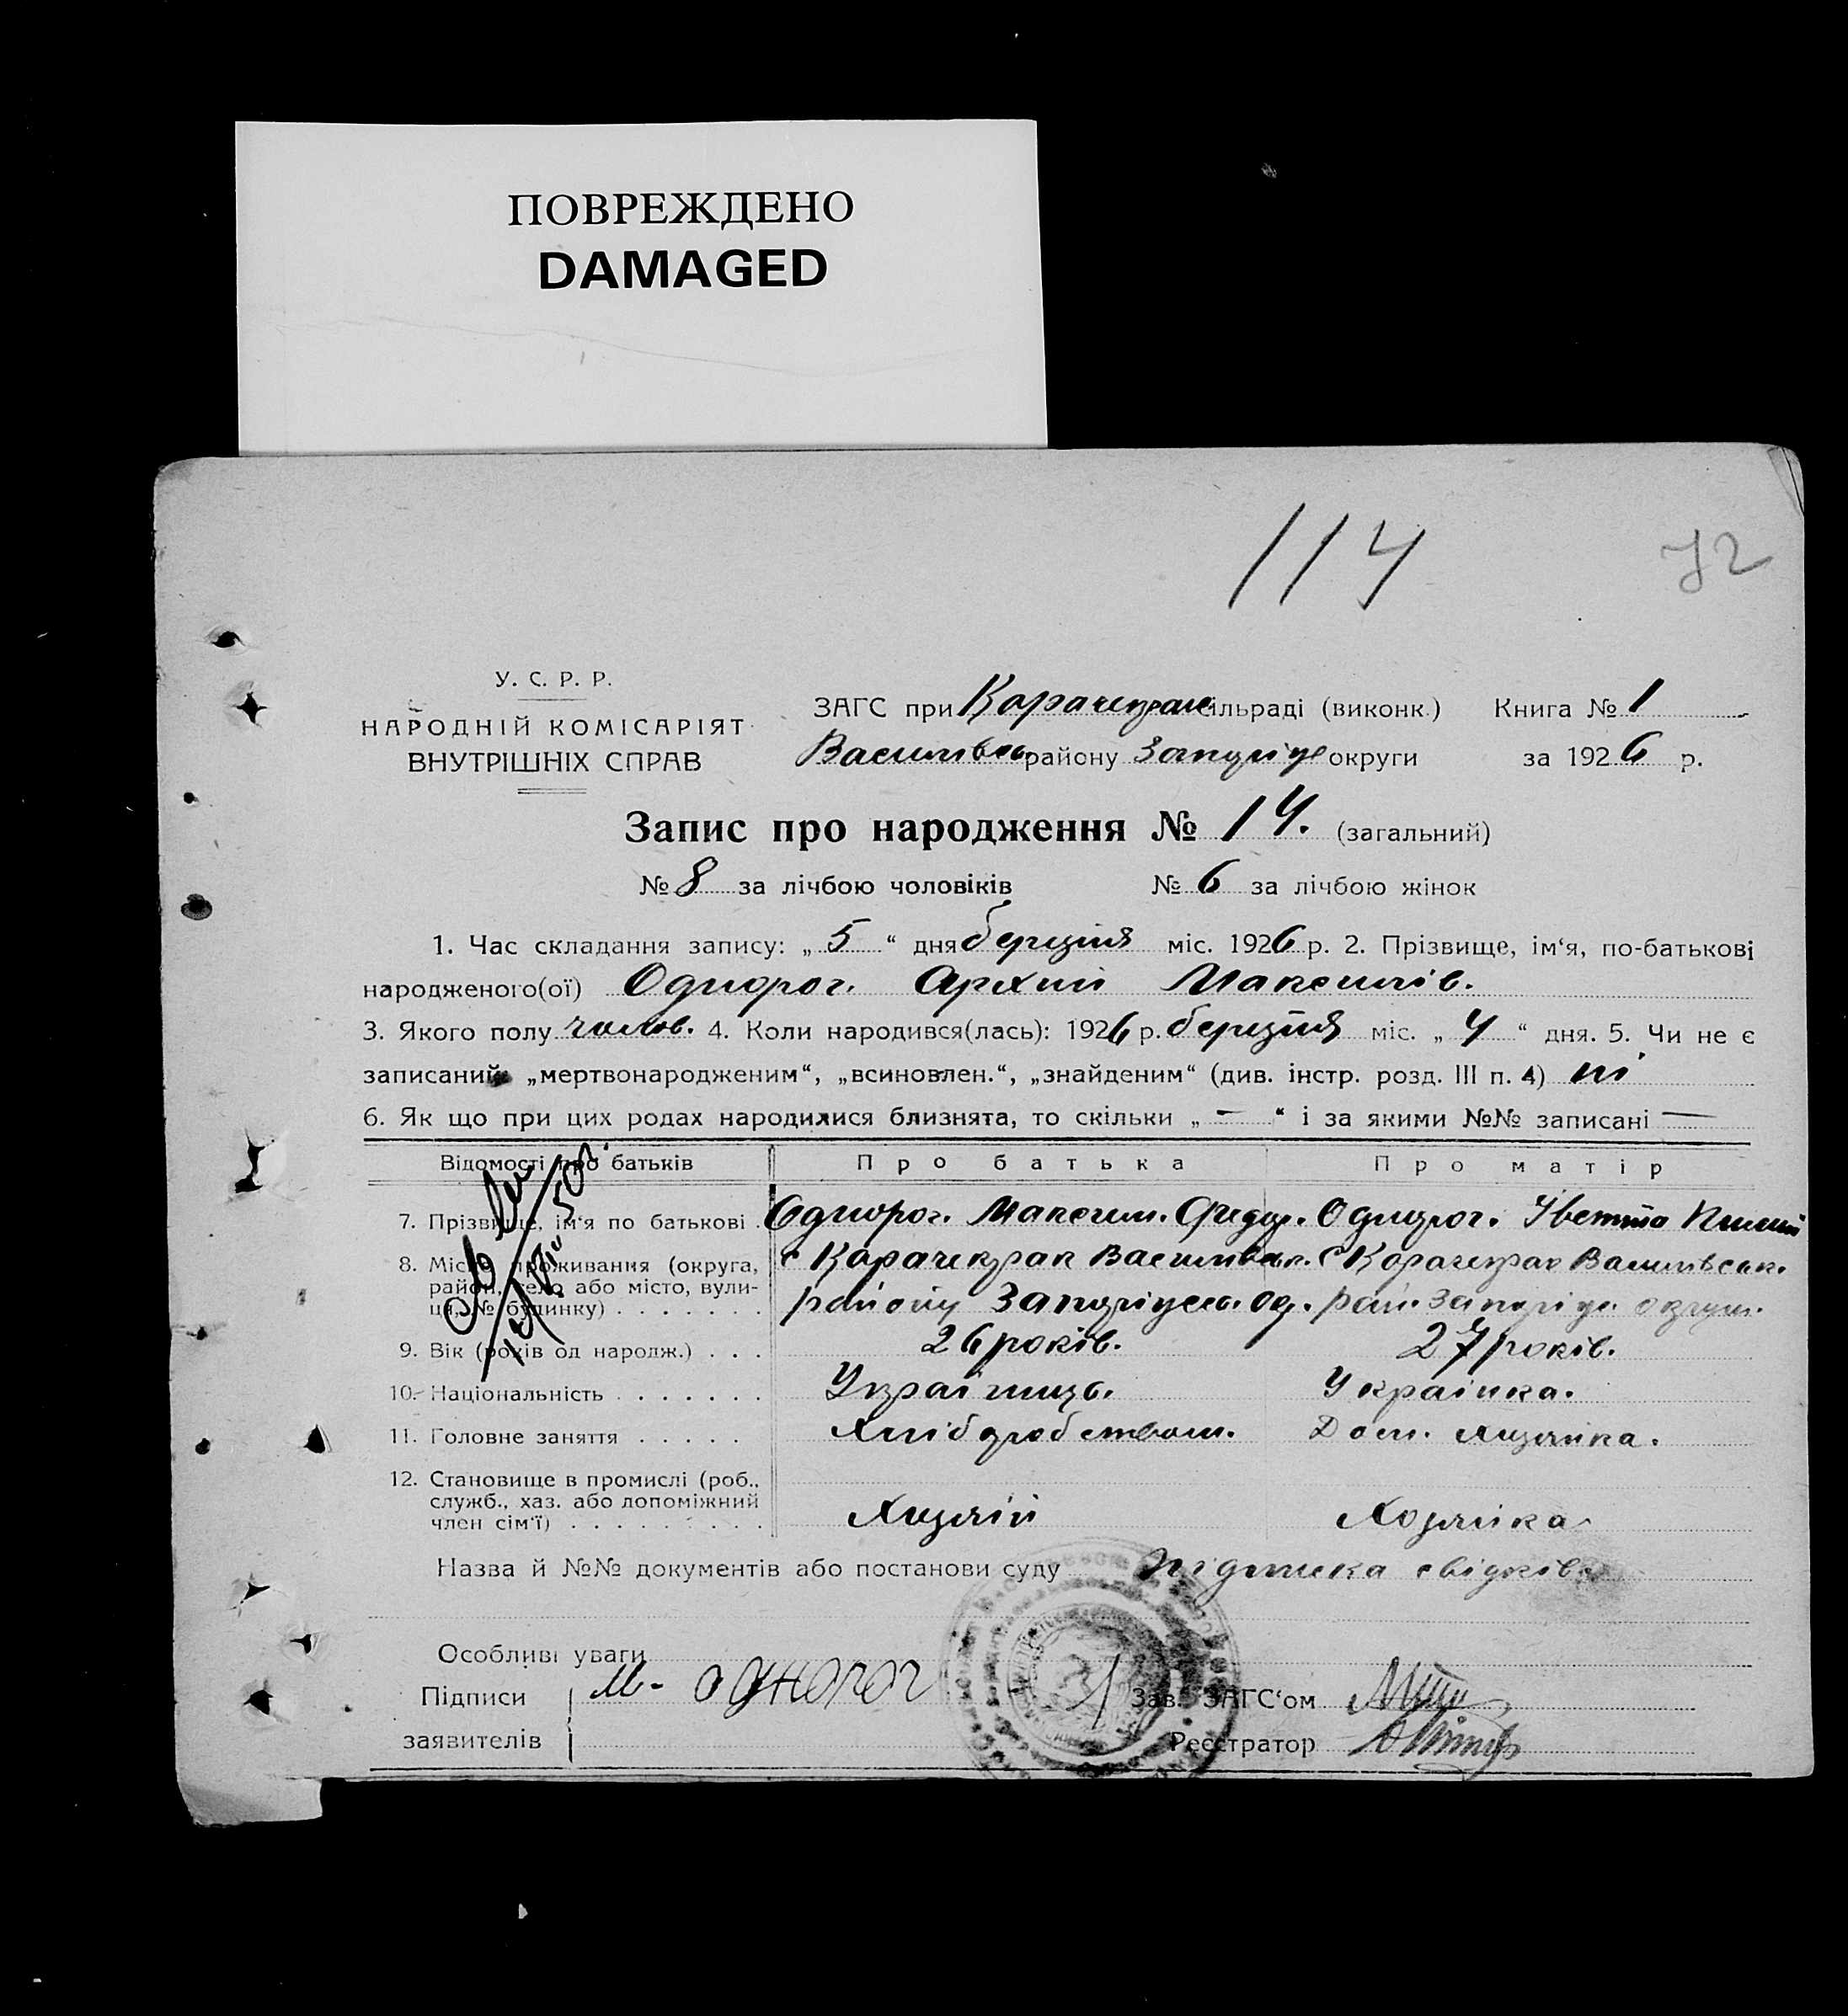 ПОВРЕЖДЕНО
DAMAGED
114
72
У. С. Р. Р.
НАРОДНІЙ КОМІСАРІЯТ
ВНУТРІШНІХ СПРАВ
ЗАГС при Карачекрак сільраді (виконк.) Книга № 1
Василівсь району Запоріце округи за 1926 р.
Запис про народження № 14. (загальний)
№ 8 за лічбою чоловіків № 6 за лічбою жінок
1. Час складання запису: „ 5 “ дня березіля міс. 1926 р. 2. Прізвище, ім‘я, по-батькові
народженого(ої) Однорог. Архип Максимів.
3. Якого полу чолов. 4. Коли народився(лась): 1926 р. березіля міс. „ 4 “ дня. 5. Чи не є
записаний „мертвонародженим“, „всиновлен.“, „знайденим“ (див. інстр. розд. III п. 4) ні
6. Як що при цих родах народилися близнята, то скільки „ — “ і за якими №№ записані —
Відомості про батьків Про батька Про матір
7. Прізвище, ім‘я по батькові . Однорог. Максим. Федор. Однорог.
8. Місце проживання (округа, с Карачекрак Василівськ. с Карачекрак Василівськ.
район, село або місто, вули-
ця, № будинку) . . . . . . . району Запоріцьк. ок. рай. Запоріц. округи.
9. Вік (років од народж.) . . . 26 років. 27 років.
10. Національність . . . . . . . Українець. Українка.
11. Головне заняття . . . . . Хліборобством. Дом. хозяйка.
12. Становище в промислі (роб.,
служб., хаз. або допоміжний
член сім‘ї) . . . . . . . . . Хозяїн Хозяйка
Назва й №№ документів або постанови суду підписка свідків
Особливі уваги
Підписи М- однорог Зав. ЗАГС‘ом
заявителів Реєстратор